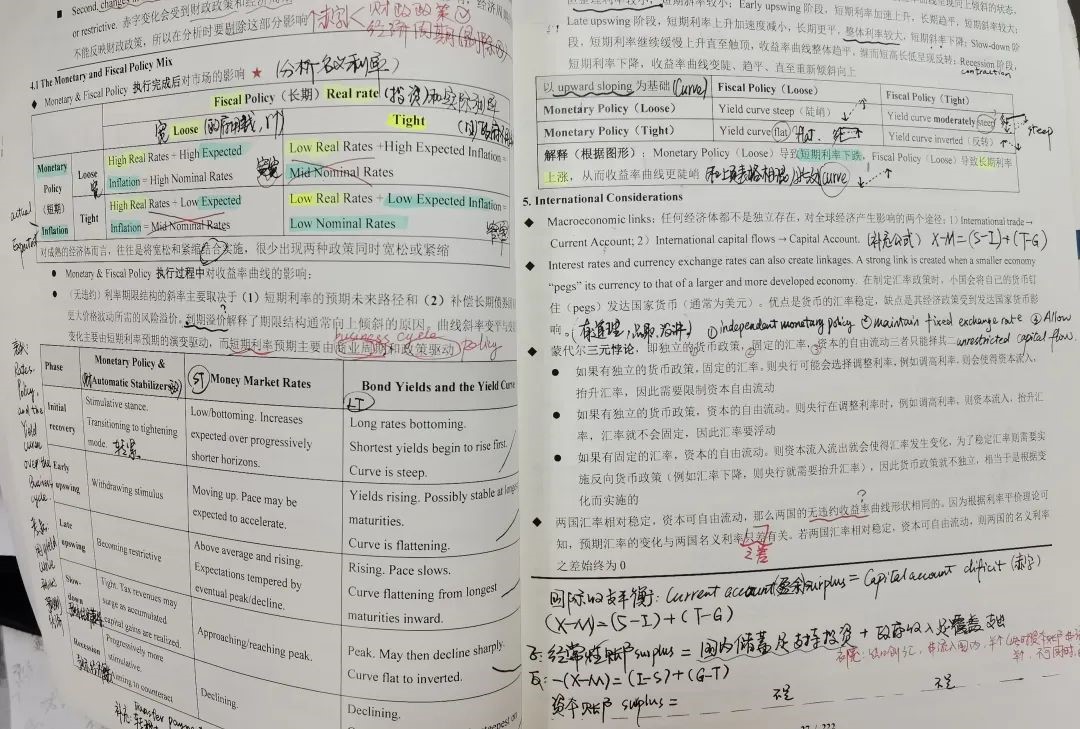 Second, changes in
or restrictive. 赤字变化会受到财政政策和经济周期
不能反映财政政策，所以在分析时要剔除这部分影响
赤字 < 财政政策
经济周期
4.1 The Monetary and Fiscal Policy Mix
(分析名义利率)
◆ Monetary & Fiscal Policy 执行完成后对市场的影响 ★
Fiscal Policy（长期）Real rate (投资)和实际利率
宽 Loose
Tight
Monetary Policy (短期) Inflation
actual
Expected
Loose 宽
High Real Rates + High Expected Inflation = High Nominal Rates
Low Real Rates +High Expected Inflation = Mid Nominal Rates
Tight
High Real Rates + Low Expected Inflation = Mid Nominal Rates
Low Real Rates + Low Expected Inflation = Low Nominal Rates
对成熟的经济体而言，往往是将宽松和紧缩结合实施，很少出现两种政策同时宽松或紧缩
● Monetary & Fiscal Policy 执行过程中对收益率曲线的影响：
● （无违约）利率期限结构的斜率主要取决于（1）短期利率的预期未来路径和（2）补偿长期债券
更大价格波动所需的风险溢价。到期溢价解释了期限结构通常向上倾斜的原因。曲线斜率变平与
变化主要由短期利率预期的演变驱动，而短期利率预期主要由商业周期和政策驱动
business cycle
policy
Rates,
Policy,
and the
Yield
curve
over the
Business
cycle.
Phase
Monetary Policy & Automatic Stabilizer
ST Money Market Rates
Bond Yields and the Yield Curve
LT
Initial recovery
Stimulative stance. Transitioning to tightening mode.
Low/bottoming. Increases expected over progressively shorter horizons.
Long rates bottoming.
Shortest yields begin to rise first.
Curve is steep.
Early upswing
Withdrawing stimulus
Moving up. Pace may be expected to accelerate.
Yields rising. Possibly stable at longest maturities.
Curve is flattening.
Late upswing
Becoming restrictive
Above average and rising. Expectations tempered by eventual peak/decline.
Rising. Pace slows.
Curve flattening from longest maturities inward.
Slow-down
Tight. Tax revenues may surge as accumulated capital gains are realized.
Approaching/reaching peak.
Peak. May then decline sharply.
Curve flat to inverted.
Recession
Progressively more stimulative.
Aiming to counteract
Declining.
Declining.
补充: Transfer payme
Late upswing 阶段，短期利率上升加速度减小，长期更平，整体利率较大，短期斜率下降；Slow-down 阶
段，短期利率继续缓慢上升直至触顶，收益率曲线整体趋平，继而短高长低呈现反转；Recession 阶段，
短期利率下降，收益率曲线变陡、趋平、直至重新倾斜向上
contraction
以 upward sloping 为基础 (Curve)
Fiscal Policy（Loose）
Fiscal Policy（Tight）
Monetary Policy（Loose）
Yield curve steep（陡峭）
Yield curve moderately steep
steep
Monetary Policy（Tight）
Yield curve flat
flat.
Yield curve inverted（反转）
解释（根据图形）：Monetary Policy（Loose）导致短期利率下跌，Fiscal Policy（Loose）导致长期利率
上涨，从而收益率曲线更陡峭
curve
5. International Considerations
◆ Macroeconomic links：任何经济体都不是独立存在，对全球经济产生影响的两个途径：1）International trade→
Current Account；2）International capital flows → Capital Account. (补充公式) X-M=(S-I)+(T-G)
◆ Interest rates and currency exchange rates can also create linkages. A strong link is created when a smaller economy
"pegs" its currency to that of a larger and more developed economy. 在制定汇率政策时，小国会将自己的货币钉
住（pegs）发达国家货币（通常为美元）。优点是货币的汇率稳定，缺点是其经济政策受到发达国家货币影
响。
① independent monetary policy ② maintain fixed exchange rate ③ Allow
unrestricted capital flow.
◆ 蒙代尔三元悖论，即独立的货币政策，固定的汇率，资本的自由流动三者只能择其二
● 如果有独立的货币政策，固定的汇率，则央行可能会选择调整利率，例如调高利率，则会使得资本流入，
抬升汇率，因此需要限制资本自由流动
● 如果有独立的货币政策，资本的自由流动。则央行在调整利率时，例如调高利率，则资本流入，抬升汇
率，汇率就不会固定，因此汇率要浮动
● 如果有固定的汇率，资本的自由流动。则资本流入流出就会使得汇率发生变化，为了稳定汇率则需要实
施反向货币政策（例如汇率下降，则央行就需要抬升汇率），因此货币政策就不独立，相当于是根据变
化而实施的
◆ 两国汇率相对稳定，资本可自由流动，那么两国的无违约收益率曲线形状相同的。因为根据利率平价理论可
知，预期汇率的变化与两国名义利率只差有关。若两国汇率相对稳定，资本可自由流动，则两国的名义利率
之差
之差始终为 0
国际收支平衡: Current account (盈余) surplus = Capital account dificit (赤字)
(X-M)=(S-I)+(T-G)
正: 经常性账户 surplus = 国内储蓄足支持投资 + 政府收入足覆盖支出
反: -(X-M)=(I-S)+(G-T)
资本账户 surplus = 不足 不足